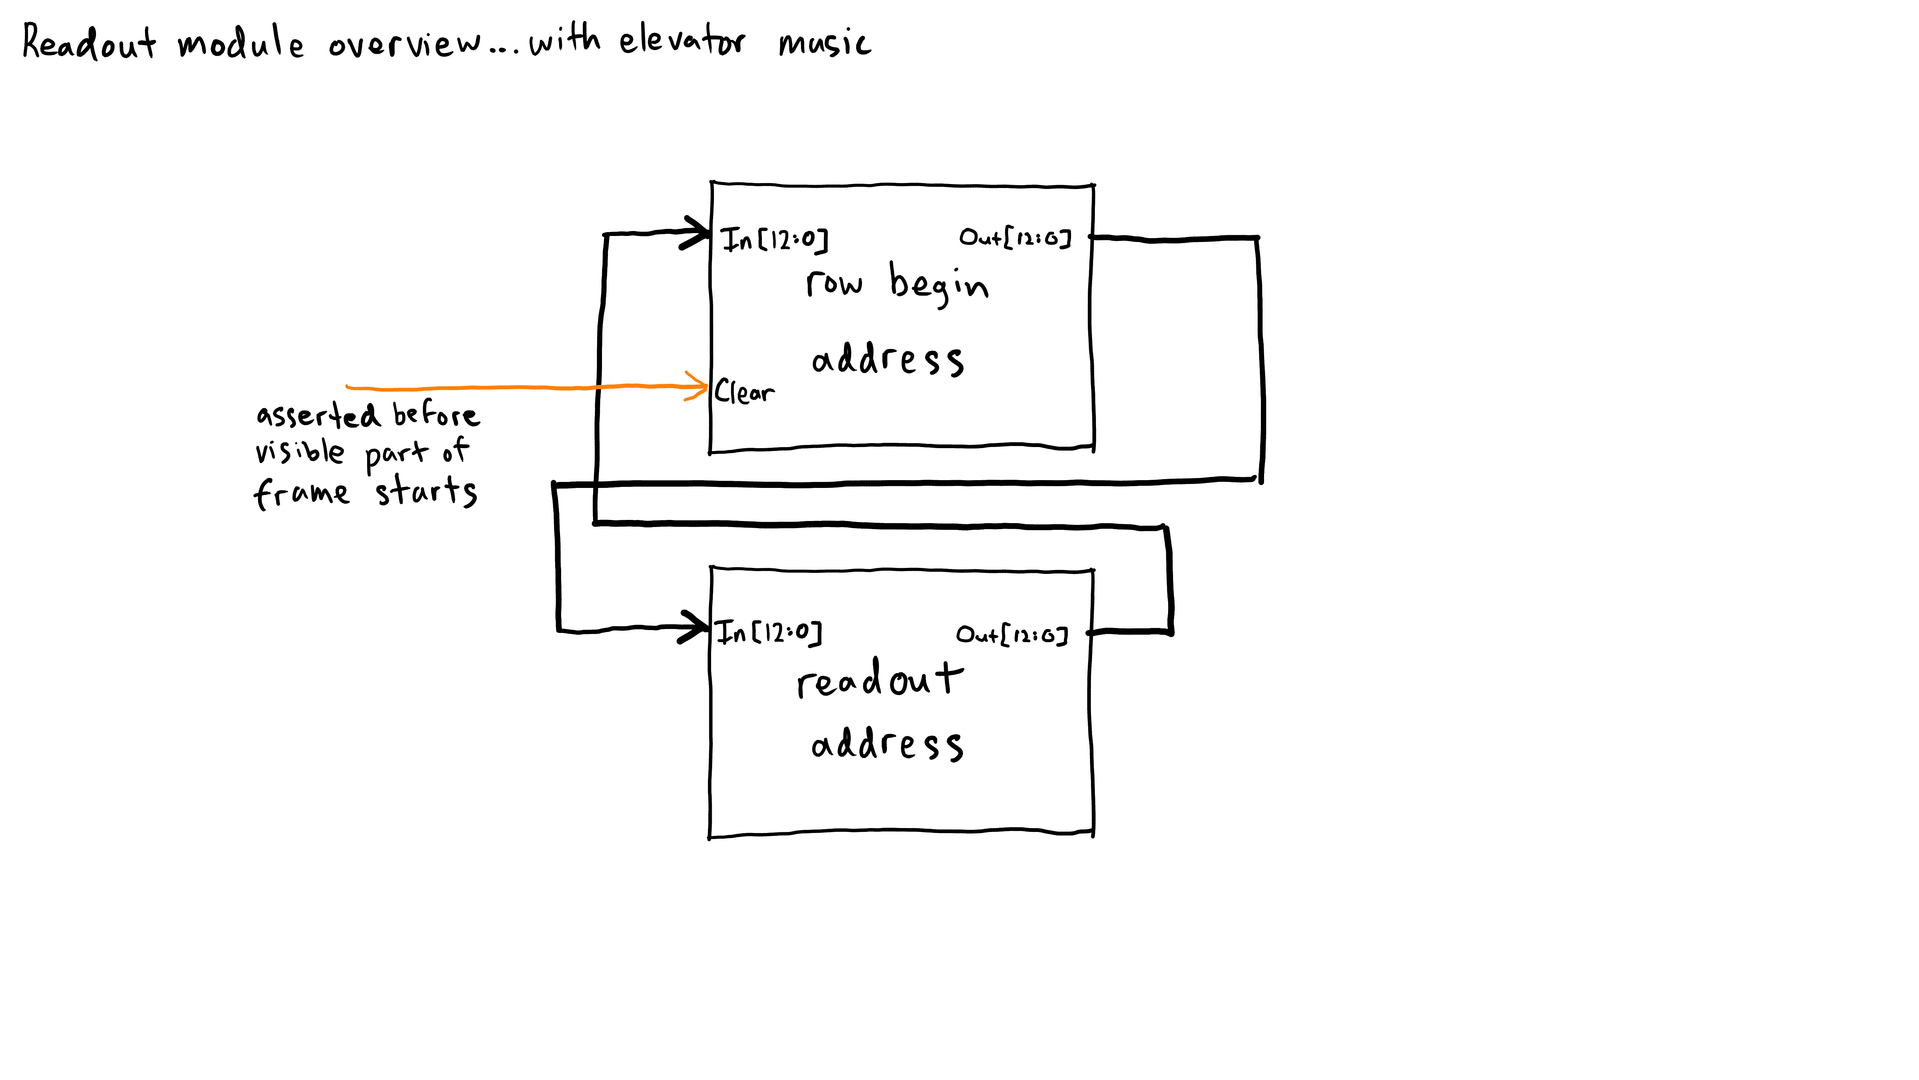 Readout module overview...with elevator music
In[12:0] Out[12:0]
row begin
address
Clear
asserted before
visible part of
frame starts
In[12:0] Out[12:0]
readout
address